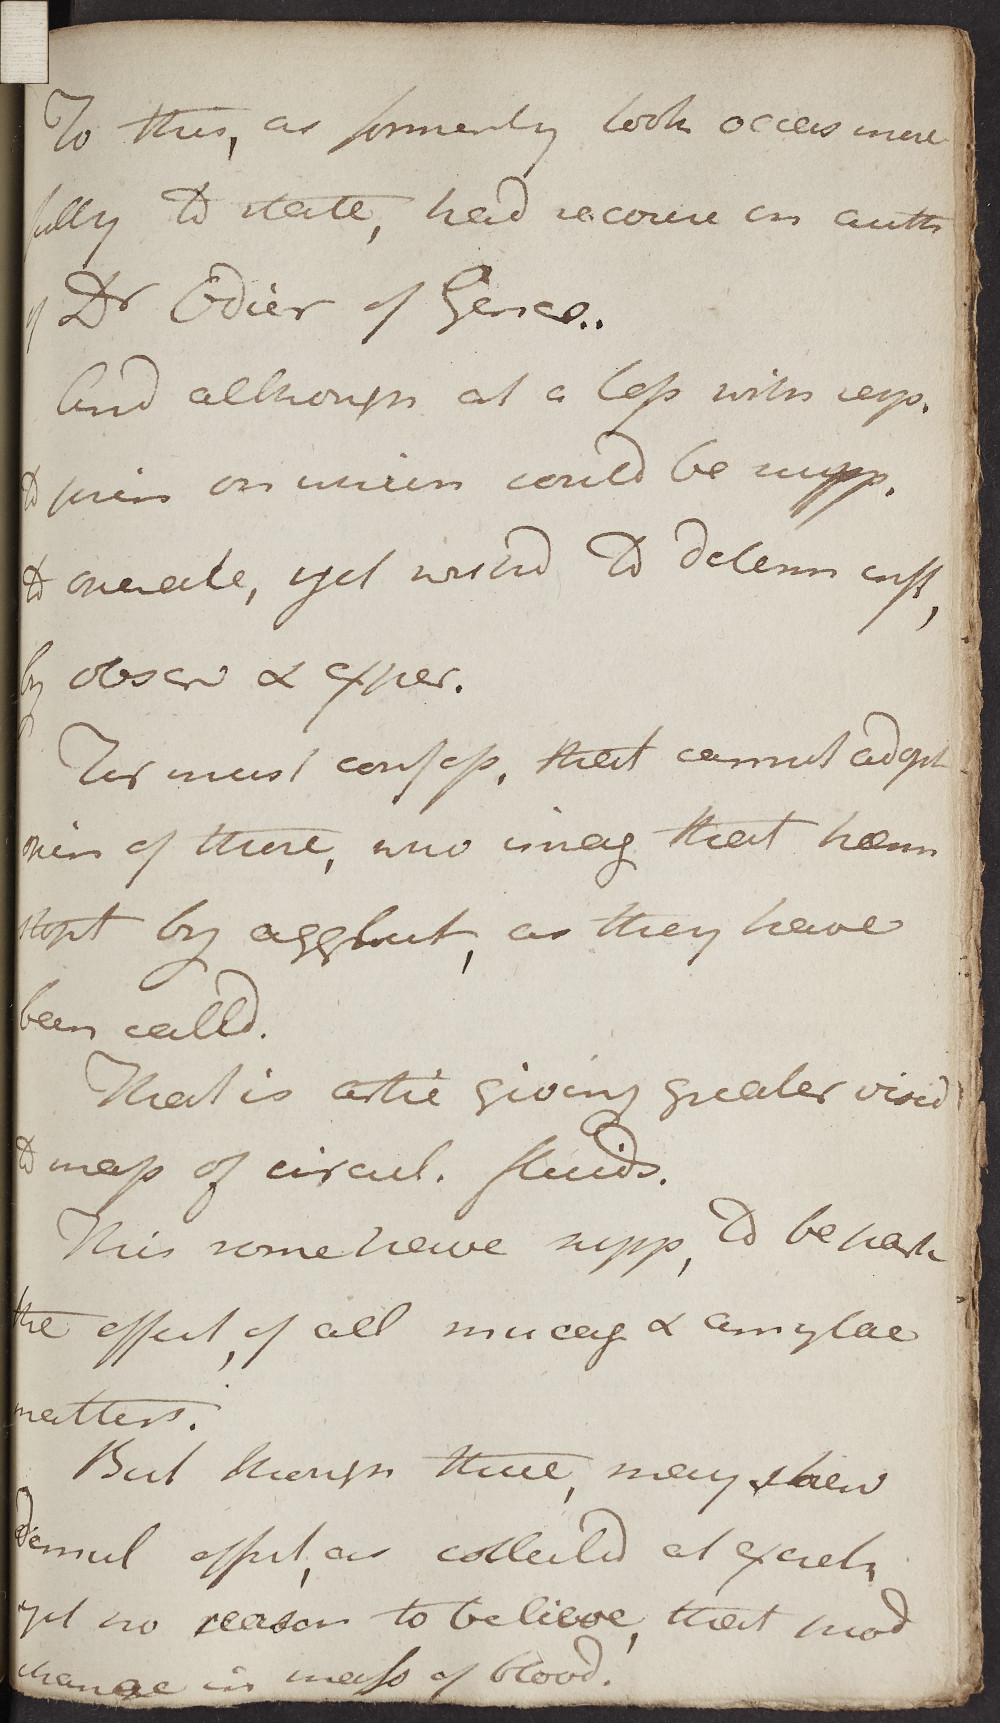 To this, as formerly took occas more
fully to state, had recourse on auth
of Dr Odier of Genev..
And although at a loss with resp.
to prin on which could be supp.
to operate, yet wishd to determ efft,
by observ & exper.
For must confess, that cannot adopt
opin of those, who imag that hæm
stopt by agglut, as they have
been calld.
That is artic giving greater viscid
to mass of circul. fluids.
This some have supp, to be part
the effect, of all mucag & amylac
matters.
But though these, may shew
demul effect, as collectd at extrem,
yet no reason to believe, that prod
change in mass of blood.